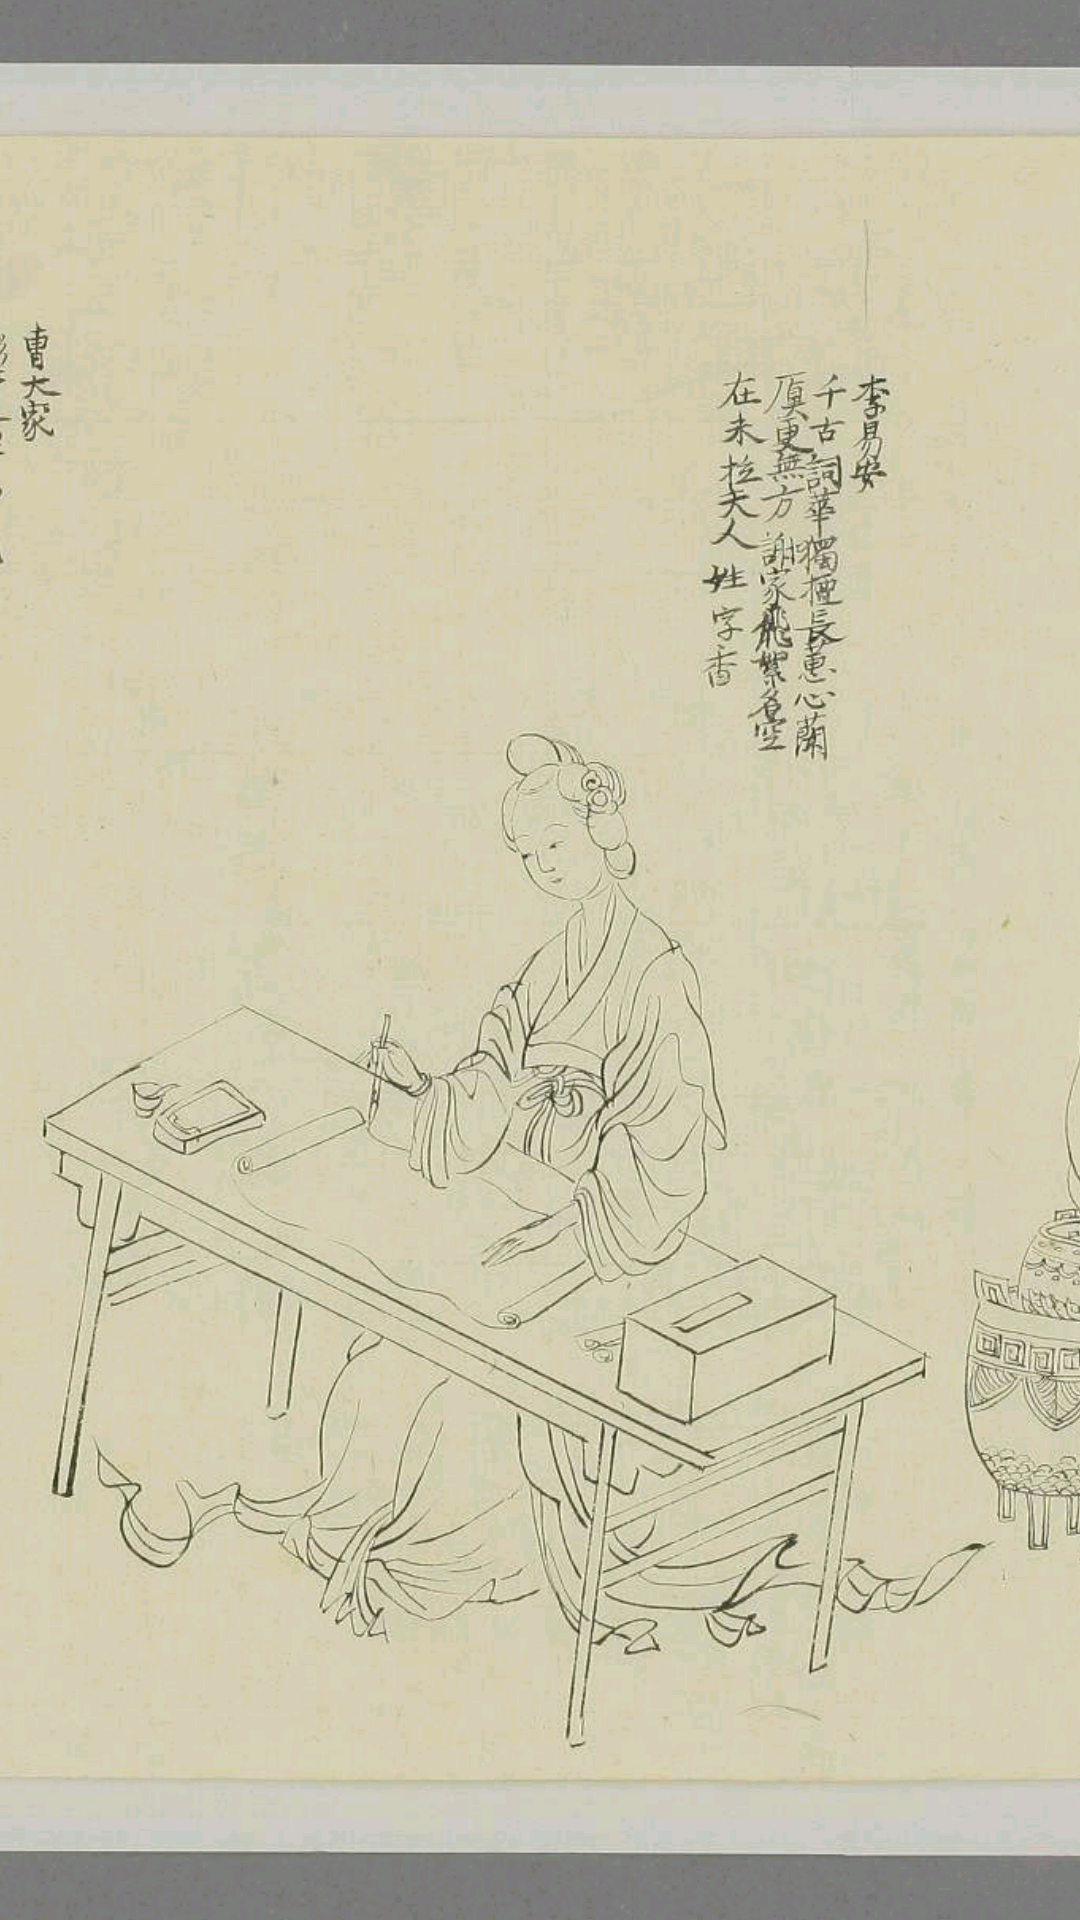 李易安
千古詞華獨擅長蕙心蘭
更無方謝家飛絮名空
在未拉夫人姓字香
曹大家